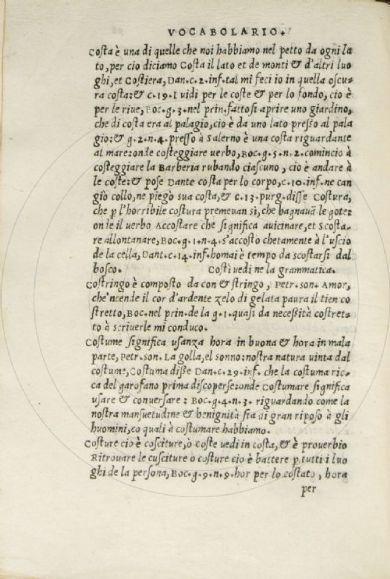 VOCABOLARIO.
Costa è una di quelle che noi habbiamo nel petto da ogni la
to, per cio diciamo Costa il lato et de monti & d'altri luo
ghi, et Costiera, DAN.c.2.inf.tal mi feci io in quella oscu
ra costa:& c.19.I vidi per le coste & per lo fondo, cio è
per le riue, BOC.g.3.nel prin.fattosi aprire uno giardino,
che di costa era al palagio, cio è da uno lato presso al pala
gio:& g.2.n.4.presso à Salerno è una costa riguardante
al mare:onde costeggiare uerbo, BOC.g.5.n.2.cominciò à
costeggiare la Barberia rubando ciascuno, cio è andare à
le coste:& pose Dante costa per lo corpo, c.10.inf.ne can
giò collo, ne piegò sua costa, & c.13.purg.disse Costura,
che p l'horribile costura premeuan sì, che bagnauã le gote:
onie il uerbo Accostare che significa auicinare, et Scosta-
re allontanare, BOC.g.1.n.4.s'accosto chetamente à l'uscio
de la cella, DAN.c.14.inf.homai è tempo da scostarsi dal
bosco. Costì vedi ne la grammatica.
Costringo è composto da con & stringo, PETR.son.Amor,
che'ncende il cor d'ardente zelo di gelata paura il tien co
stretto, BOC.nel prin.de la g.1.quasi da necessità costret=
to à scriuerle mi conduco.
Costume significa usanza hora in buona & hora in mala
parte, PETR.son.La gola, el sonno:nostra natura uinta dal
costume, Costuma disse DAN.c.29.inf.che la costuma ric=
ca del garofano prima discoperse:onde Costumare significa
usare & conuersare: BOC.g.4.n.3.riguardando come la
nostra mansuetudine & benignità sia di gran riposo à gli
huomini, co quali à costumare habbiamo.
Costure cio è cosciture, ò coste vedi in costa, & è prouerbio
Ritrouare le cusciture o costure cio è battere p tutti i luo
ghi de la persona, BOC.g.9.n.9.hor per lo costato, hora
per